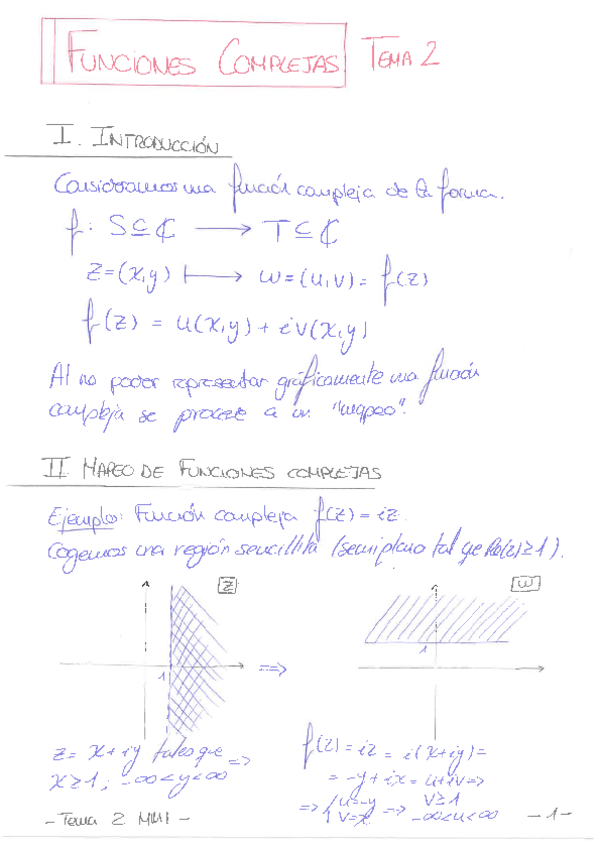 FUNCIONES COMPLEJAS TEMA 2
I. INTRODUCCIÓN
Consideramos una función compleja de la forma.
f: S ⊆ ℂ ⟶ T ⊆ ℂ
z=(x,y) ⟼ w=(u,v)= f(z)
f(z) = u(x,y) + iv(x,y)
Al no poder representar gráficamente una función
compleja se procede a un "mapeo".
II MAPEO DE FUNCIONES COMPLEJAS
Ejemplo: Función compleja f(z) = iz.
Cogemos una región sencillita (semiplano tal que Re(z)≥1).
z
w
1
⇒
1
z = x+iy tales que
x≥1; -∞<y<∞
⇒
f(z) = iz = i(x+iy)=
= -y+ix = u+iv ⇒
⇒ { u=-y v=x ⇒ v≥1 -∞<u<∞
- Tema 2 MMI -
- 1 -